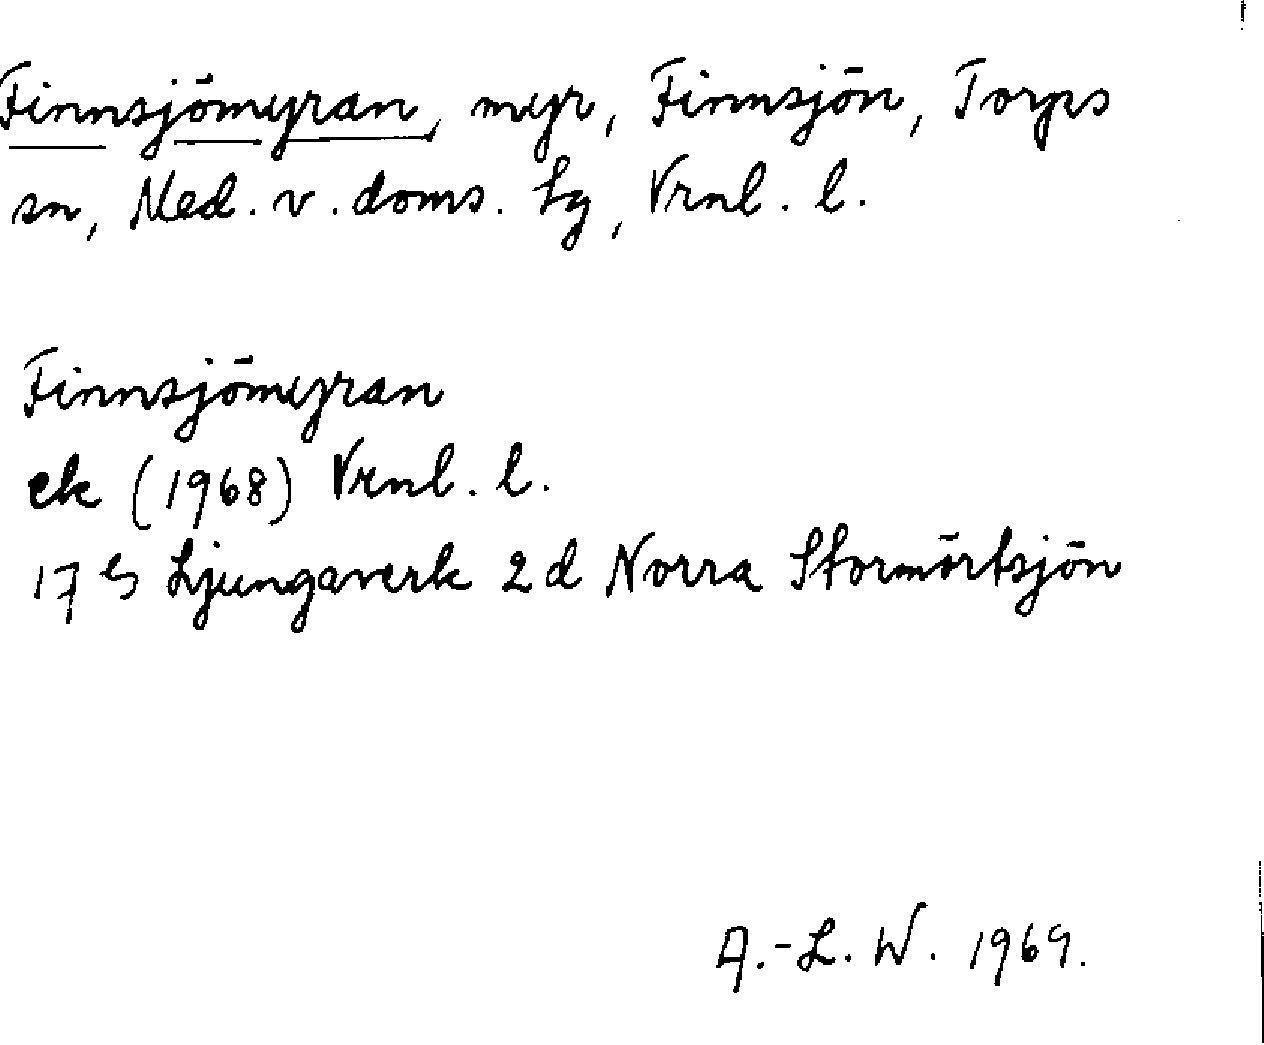 Finnsjömyran, myr, Finnsjön, Torps
sn, Med. v. doms. tg, Vrnl. l.
Finnsjömyran
ek (1968) Vrnl. l.
17 G Ljungaverk 2 d Norra Stormörtsjön
A.-L. W. 1969.